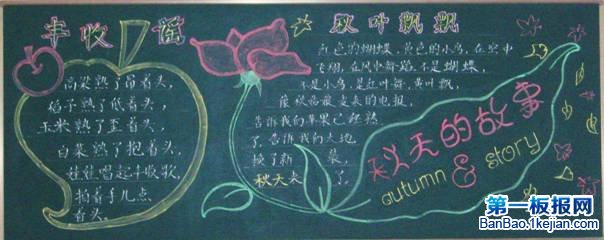 丰收谣
高粱熟了昂着头，
稻子熟了低着头，
玉米熟了歪着头，
白菜熟了抱着头，
娃娃唱起丰收歌，
拍着手儿点
着头。
秋叶飘飘
红色的蝴蝶，黄色的小鸟，在空中
飞翔，在风中舞蹈。不是蝴蝶，
不是小鸟，是红叶舞，黄叶飘，
是秋姑娘发来的电报，
告诉我们苹果已经熟
了，告诉我们大地
换了新装，
秋天来了。
秋天的故事
autumn & story
第一板报网
BanBao.1kejian.com